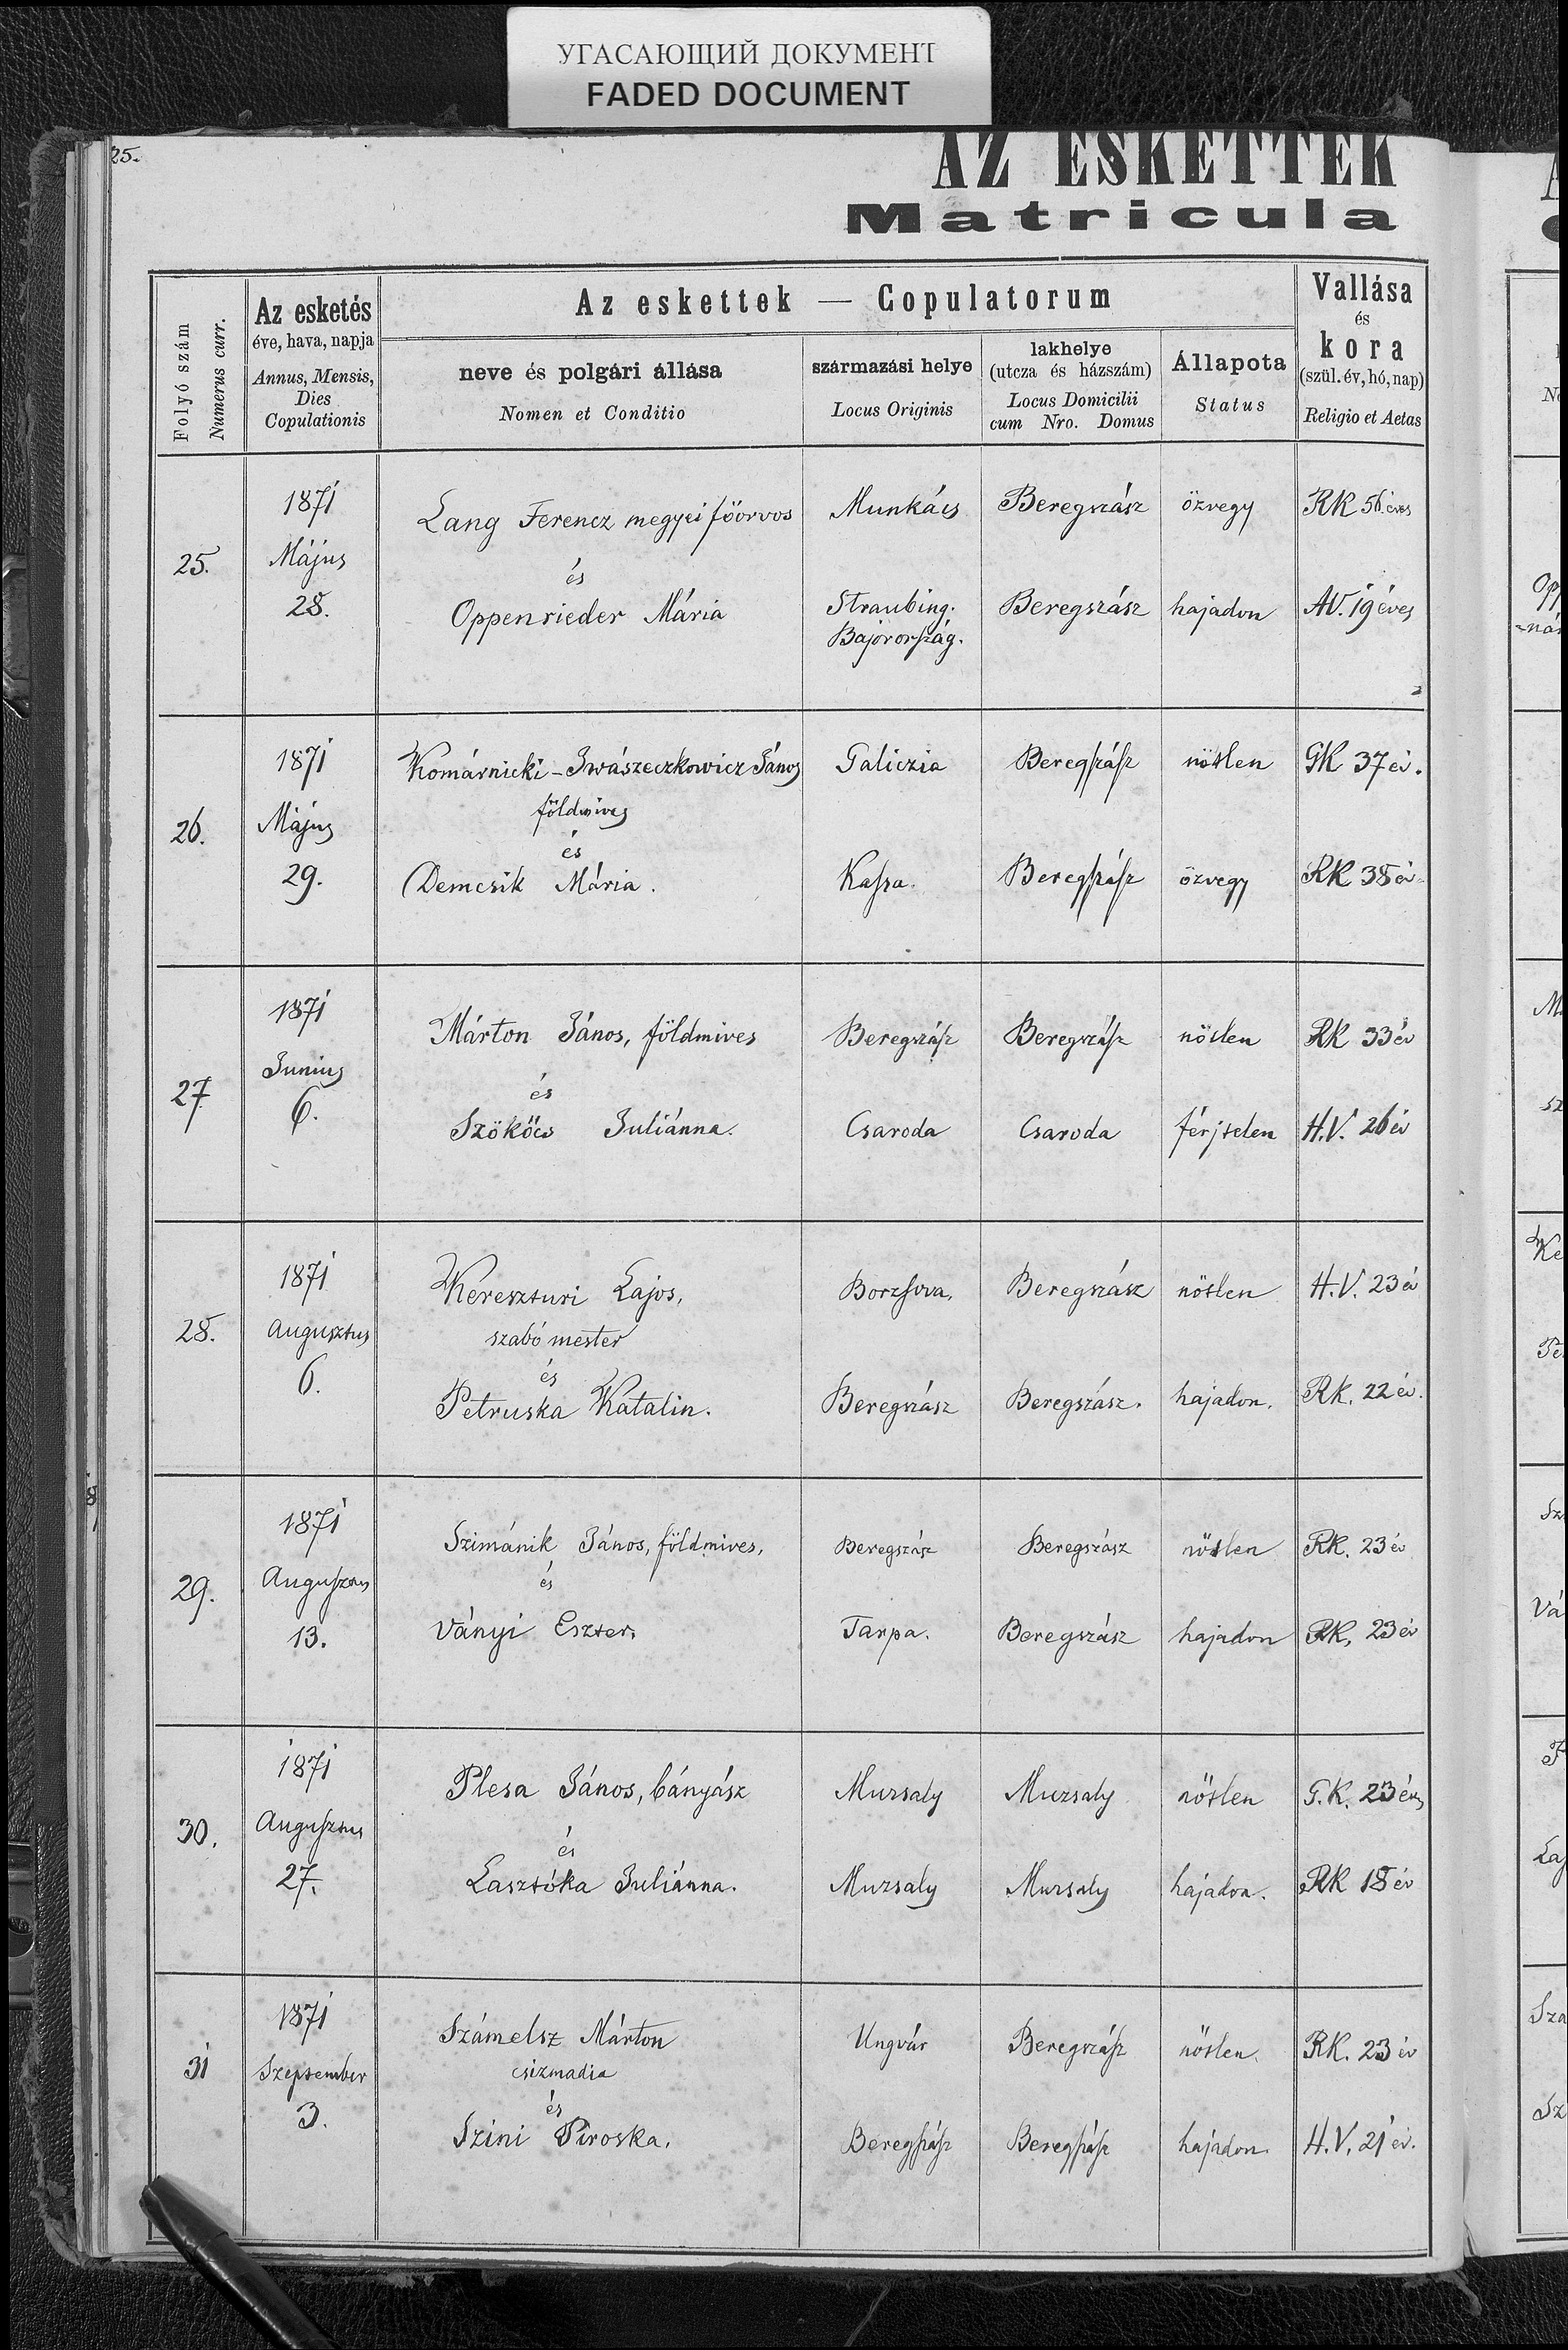 УГАСАЮЩИЙ ДОКУМЕНТ
FADED DOCUMENT
25.
AZ ESKETTEK
Matricula
Folyó szám
Numerus curr.
Az esketés
éve, hava, napja
Annus, Mensis,
Dies
Copulationis
Az eskettek — Copulatorum
neve és polgári állása
Nomen et Conditio
származási helye
Locus Originis
lakhelye
(utcza és házszám)
Locus Domicilii
cum Nro. Domus
Állapota
Status
Vallása
és
kora
(szül. év, hó, nap)
Religio et Aetas
25.
1871
Május
28.
Lang Ferencz megyei főorvos Munkács Beregszász özvegy RK 56 éves
és
Oppenrieder Mária Straubing. Beregszász hajadon AV. 19 éves
Bajorország.
26.
1871
Május
29.
Komárnicki-Iwászeczkowicz János Galiczia Beregszász nőtlen GK 37 év.
földmives
és
Demcsik Mária. Kassa. Beregszász özvegy RK 38 év
27
1871
Junius
6.
Márton János, földmives Beregszász Beregszász nőtlen RK 33 év
és
Szökőcs Juliánna. Csaroda Csaroda férjtelen H.V. 26 év
28.
1871
Augusztus
6.
Kereszturi Lajos, Borzsova, Beregszász nőtlen H.V. 23 év
szabó mester
és
Petruska Katalin. Beregszász Beregszász. hajadon. RK. 22 év.
29.
1871
Augusztus
13.
Szimánik János, földmives, Beregszász Beregszász nőtlen RK. 23 év
és
Ványi Eszter. Tarpa. Beregszász hajadon RK. 23 év
30.
1871
Augusztus
27.
Plesa János, bányász Muzsaly Muzsaly nőtlen G.K. 23 éves
és
Lasztóka Juliánna. Muzsaly Muzsaly hajadon. RK 18 év
31
1871
Szeptember
3.
Számelsz Márton Ungvár Beregszász nőtlen. RK. 23 év
csizmadia
és
Szini Piroska. Beregszász Beregszász hajadon. H.V. 21 év.